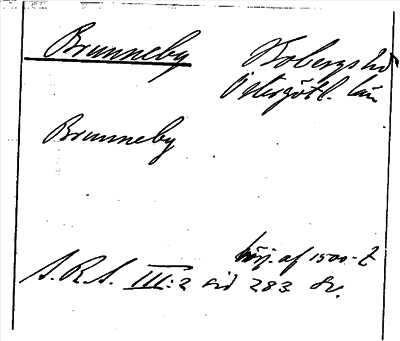 Brunneby Kobergs hd
Östergötl. län
Brunneby
börj. af 1500-t
S.R.S. III:2 sid 283 Kr.